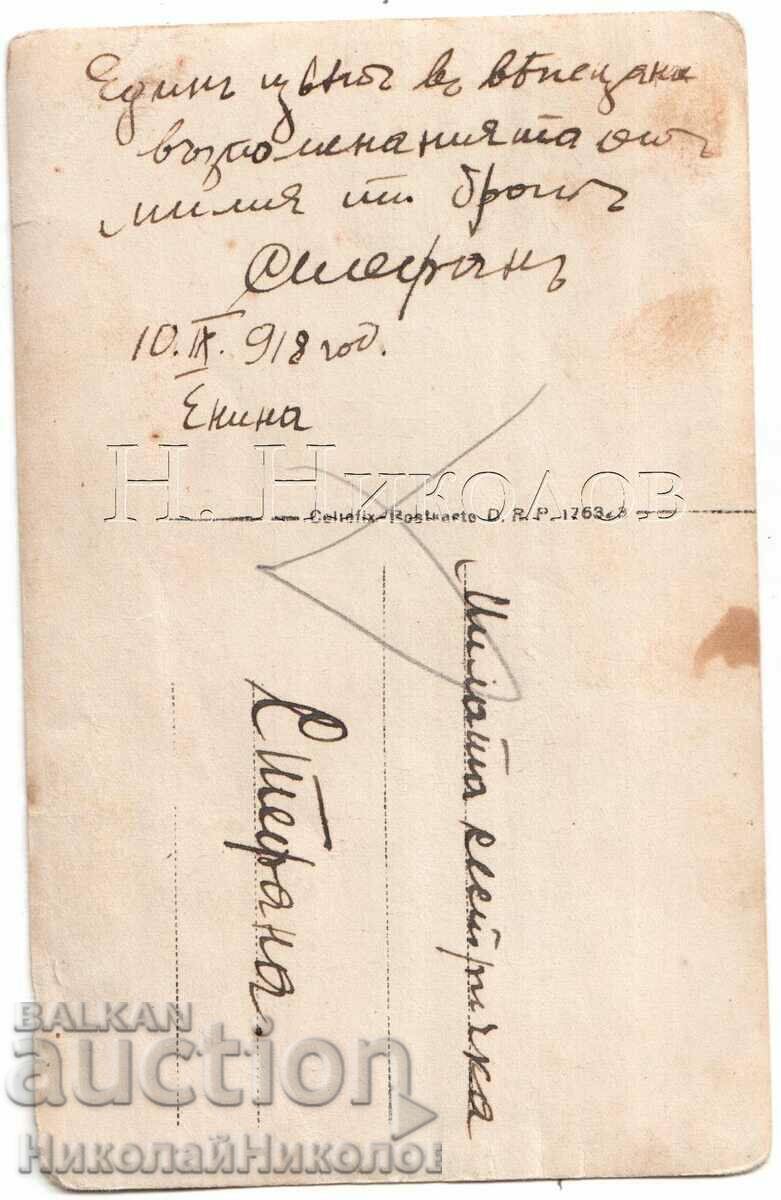 Единъ цвѣтъ въ
възпоменанията отъ
милия ти братъ
Стефанъ
10. IX. 918 год.
Енина
Н. Николов
Celtefix-Postkarte D. R. P.
Милата сестричка
Стефана.
BALKAN
auction
НиколайНиколов